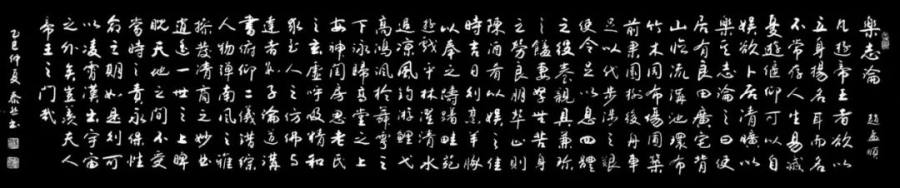 樂志論
凡遊帝王者欲以
立身揚名耳而名
不常存人生易滅
優遊偃仰可以自
娛欲卜居清曠以
樂其志論之曰使
居有良田廣宅背
山臨流溝池環匝
竹木周布場圃築
前果園樹後舟車
足以代步涉之艱
使令足以息四體
之役養親具兼珍
之膳妻孥無苦身
之勞良朋萃止則
陳酒肴以娛之佳
時吉日則烹羔豚
以奉之躊躇畦苑
遊戲平林濯清水
追涼風釣游鯉弋
高鴻諷於舞雩之
下詠歸高堂之上
安神閨房思老氏
之玄虛呼吸精和
求至人之彷彿與
達者數子論道講
書俯仰二儀錯綜
人物彈南風之雅
操發清商之妙曲
逍遙一世之上睥
睨天地之間不受
當時之責永保性
命之期如是則可
以凌霄漢出宇宙
之外矣豈羨夫入
帝王之門哉
乙巳仲夏